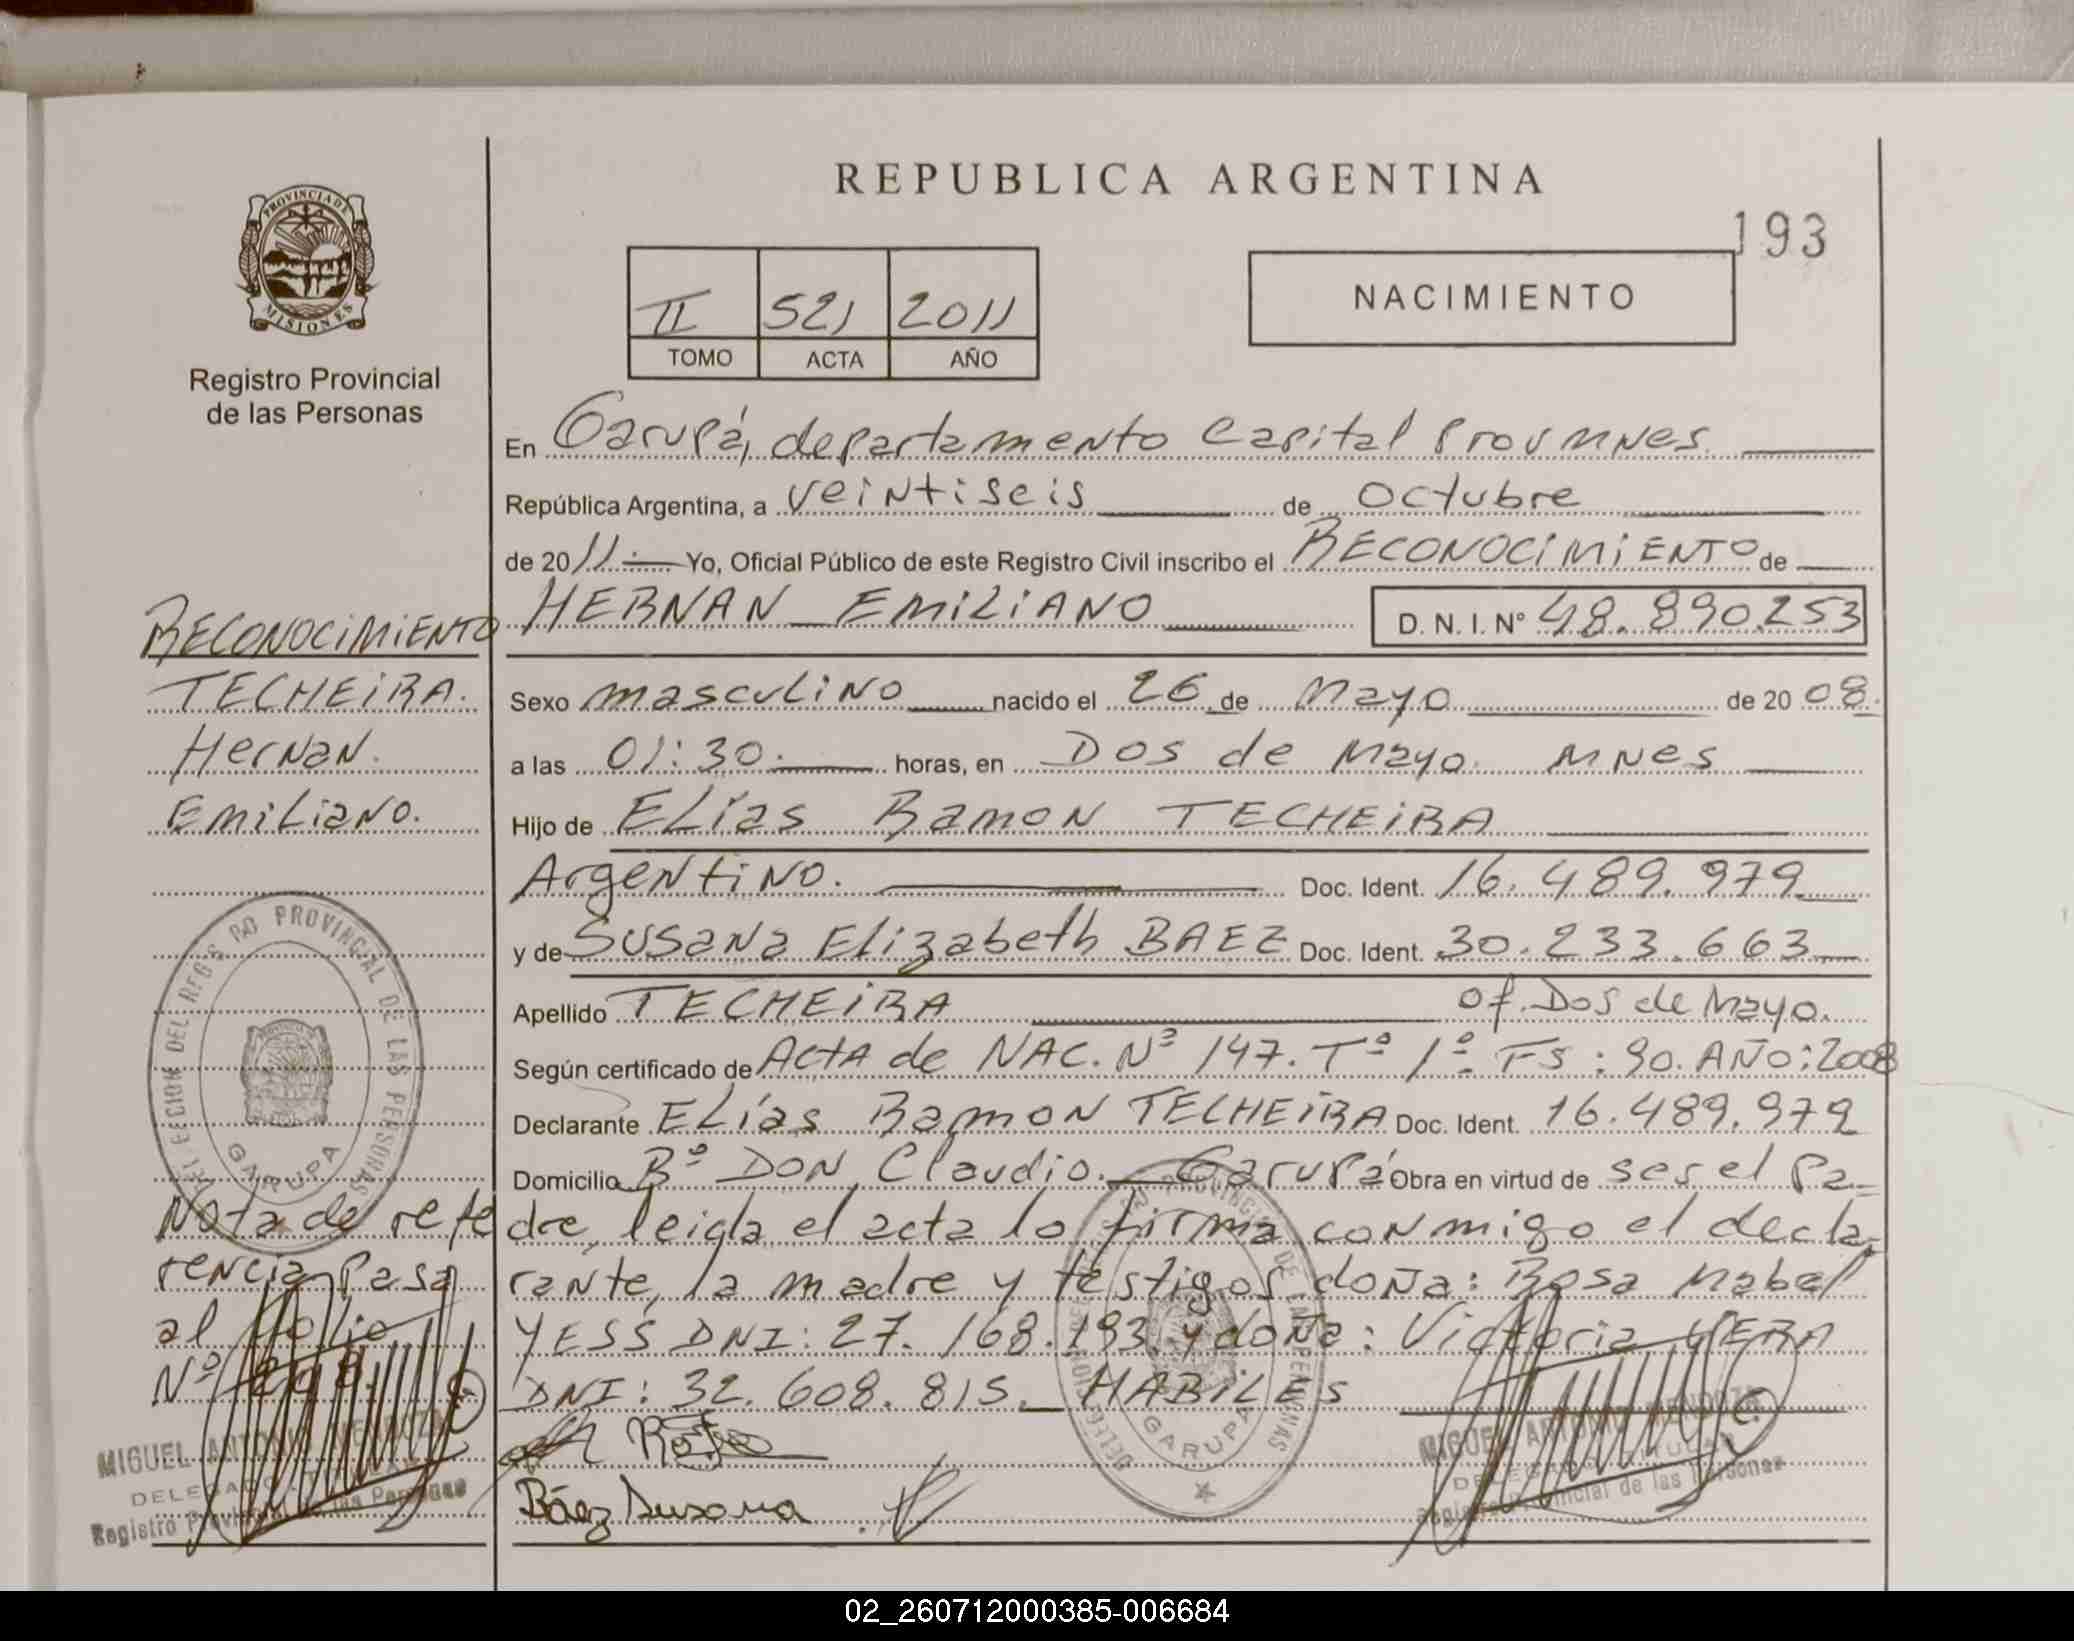 REPUBLICA ARGENTINA
193
PROVINCIA DE
MISIONES
Registro Provincial
de las Personas
II 521 2011
TOMO ACTA AÑO
NACIMIENTO
En Garupá, departamento Capital Prov Mnes.
República Argentina, a veintiseis de Octubre
de 2011.- Yo, Oficial Público de este Registro Civil inscribo el RECONOCIMIENTO de
HERNAN EMILIANO D. N. I. Nº 48.890.253
RECONOCIMIENTO
TECHEIRA.
Hernan.
Emiliano.
Sexo masculino nacido el 26 de Mayo de 2008.
a las 01:30. horas, en Dos de Mayo Mnes
Hijo de Elías Ramon TECHEIRA
Argentino. Doc. Ident. 16.489.979
y de Susana Elizabeth BAEZ Doc. Ident. 30.233.663
Apellido TECHEIRA Of. Dos de Mayo.
Según certificado de Acta de NAC. Nº 147. Tº 1º FS: 90. AÑO: 2008
Declarante Elías Ramon TECHEIRA Doc. Ident. 16.489.979
Domicilio Bº DON Claudio. Garupá Obra en virtud de ser el Pa-
dre, leida el acta lo firma conmigo el decla-
rante, la madre y testigos doña: Rosa Mabel
YESS DNI: 27.168.193 y doña: Victoria VERA
DNI: 32.608.815. HABILES
Báez Susana
DELEGACION DEL REGISTRO PROVINCIAL DE LAS PERSONAS
GARUPA
Nota de refe
rencia Pasa
al folio
Nº 208.
MIGUEL ANTONIO MENDOZA
DELEGADO TITULAR
Registro Provincial de las Personas
DELEGACION DEL REGISTRO PROVINCIAL DE LAS PERSONAS
GARUPA
MIGUEL ANTONIO MENDOZA
DELEGADO TITULAR
Registro Provincial de las Personas
02_260712000385-006684